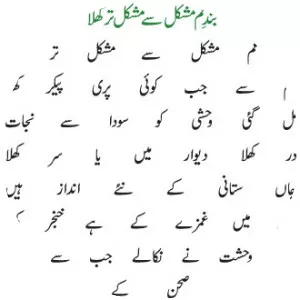 بندِ غم مشکل سے مشکل تر کھلا
غم مشکل سے مشکل تر
ہم سے جب کوئی پری پیکر کھ
مل گئی وحشی کو سودا سے نجات
در کھلا دیوار میں یا سر کھلا
جاں ستانی کے نئے انداز ہیں
میں غمزے کے ہے خنجر
وحشت نے نکالے جب سے
صحن کے